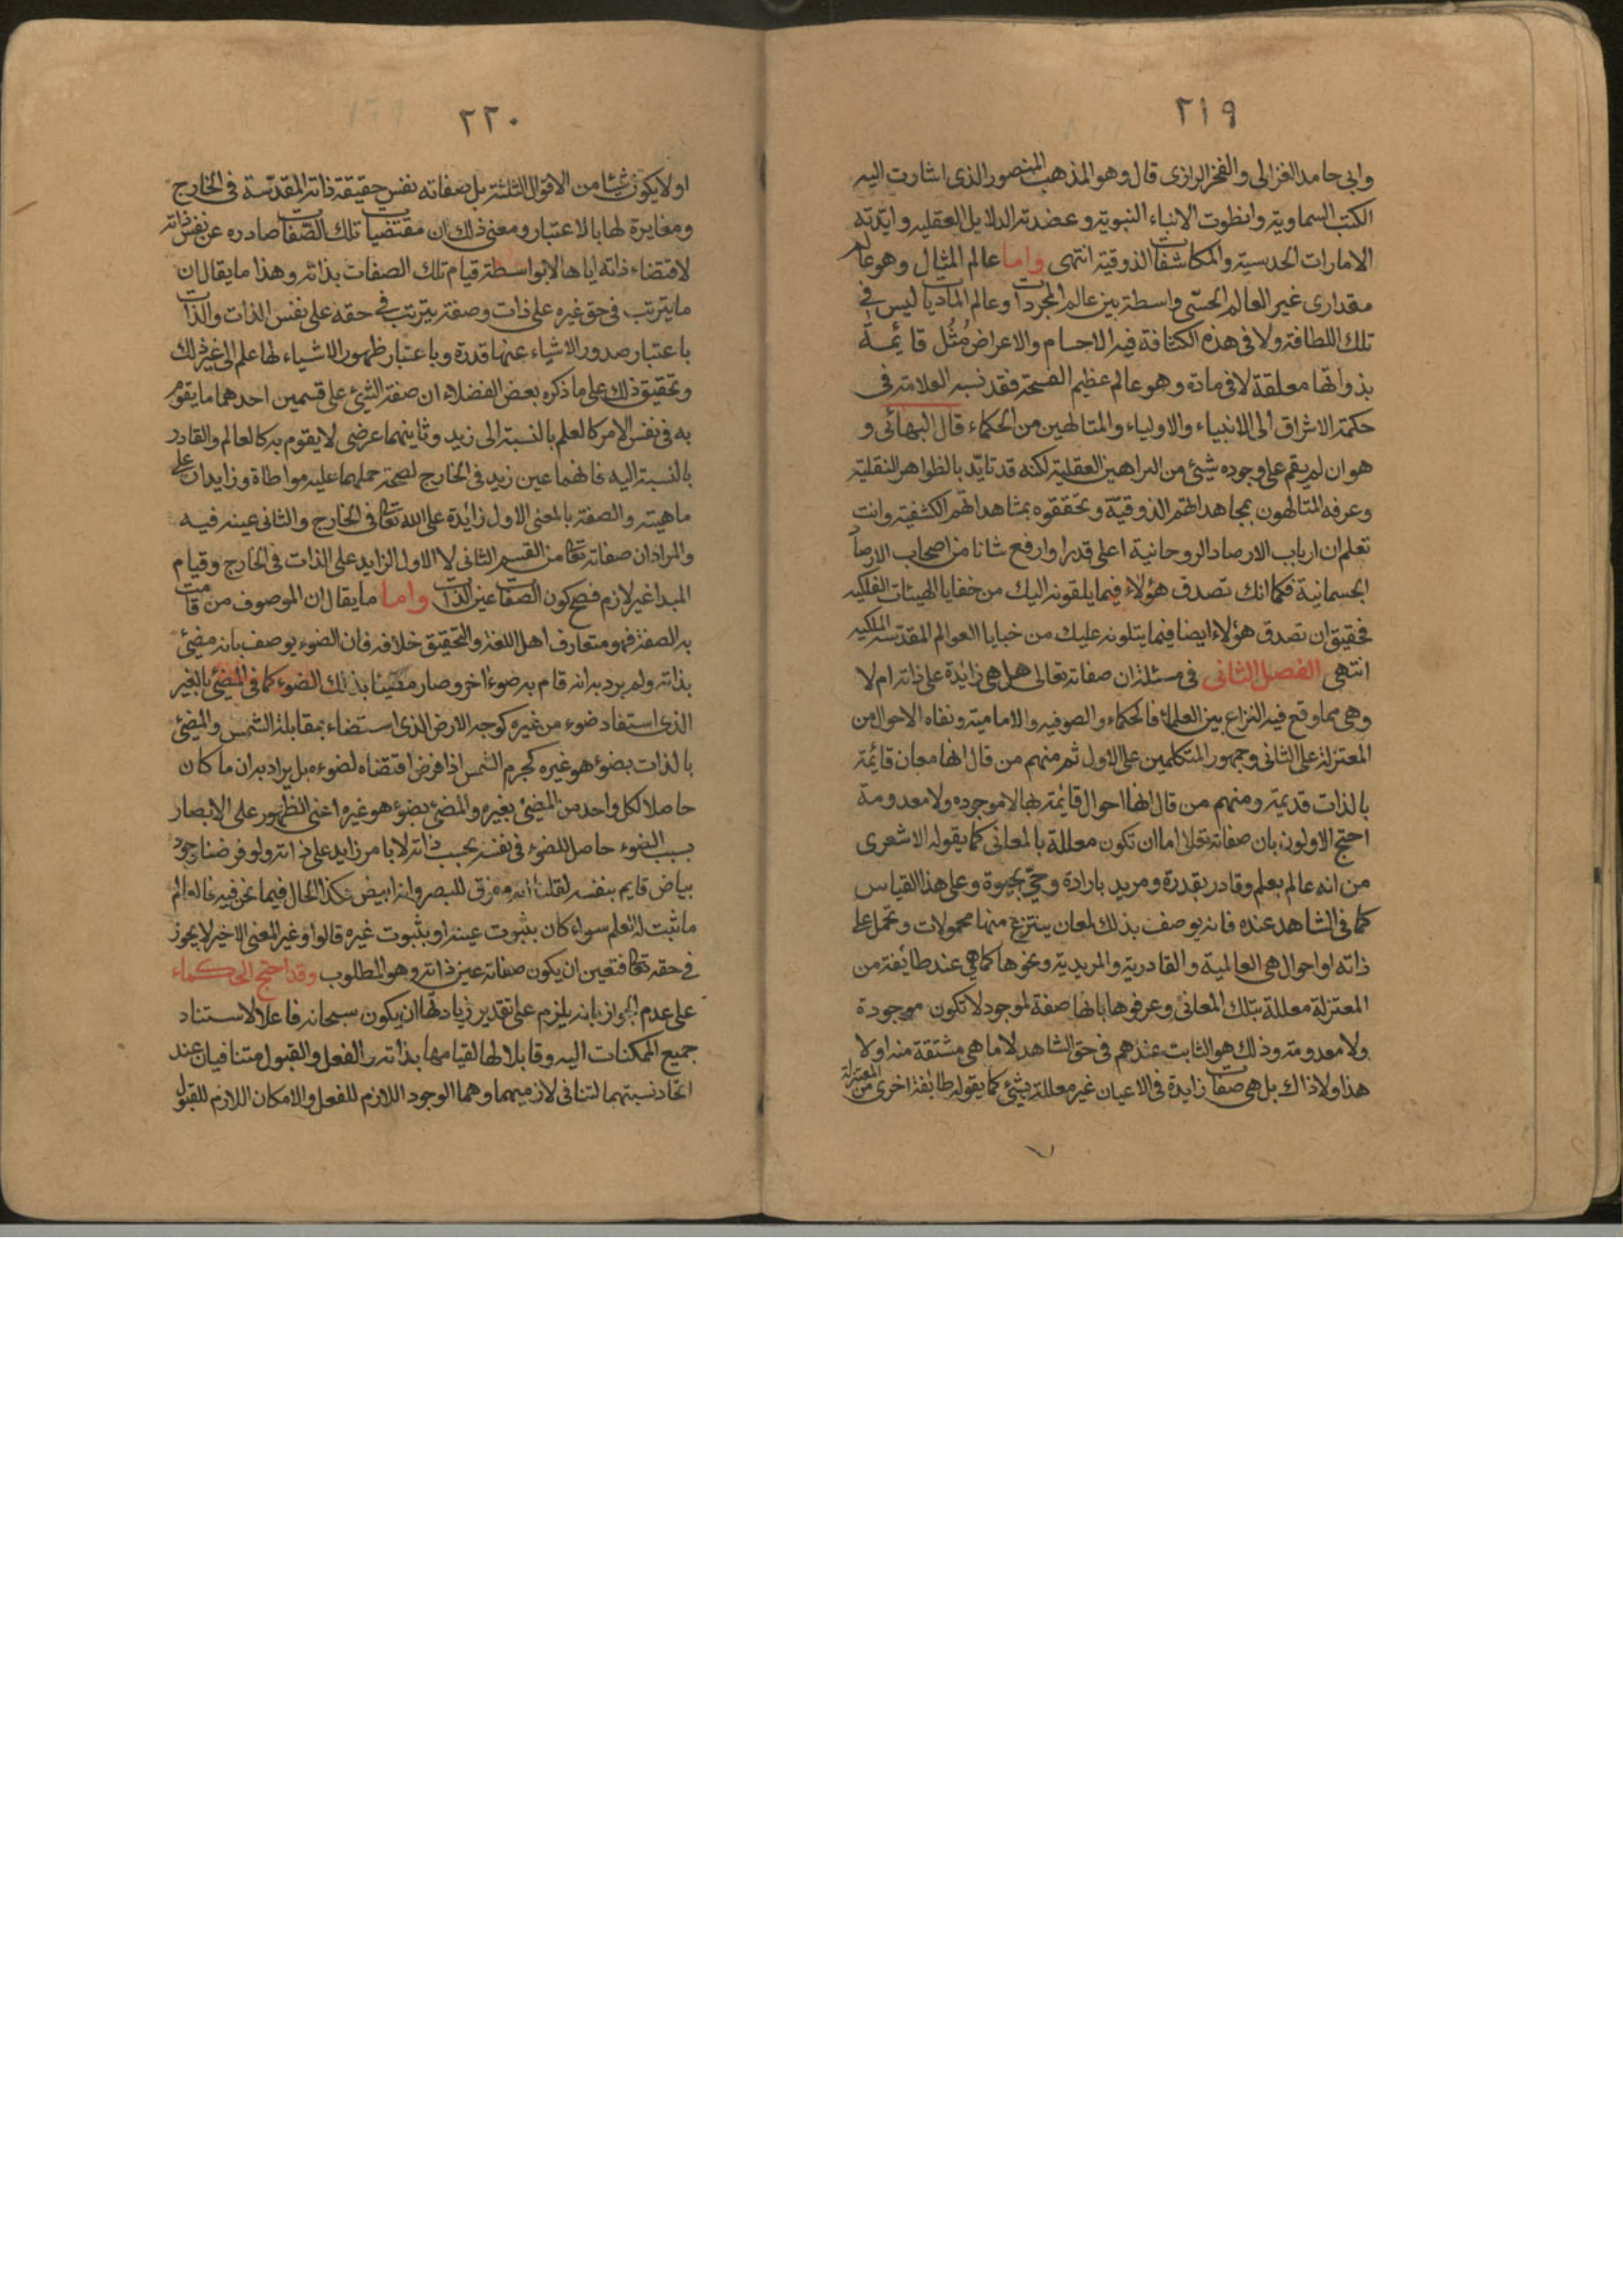 ٢١٩
وابى حامد الغزالى والفخر الرازى قال وهو المذهب المنصور الذى اشارت اليه
الكتب السماوية وانطوت الانباء النبوية وعضدته الدلايل العقليه وايّدته
الامارات الحدسية والمكاشفات الذوقية انتهى واما عالم المثال وهو عالم
مقدارى غير العالم الحسّى واسطة بين عالم المجردات وعالم الماديات ليس فى
تلك اللطافة ولا فى هذه الكثافة فيه الاجسام والاعراض مُثُل قائمة
بذواتها معلقة لا فى مادة وهو عالم عظيم الفسحة فقد نسبه العلامة فى
حكمة الاشراق الى الانبياء والاولياء والمتالهين من الحكماء قال البهائى و
هو ان لم يقم على وجوده شيئ من البراهين العقلية لكنه قد تايّد بالظواهر النقلية
وعرفه المتالهون بمجاهداتهم الذوقيّة وتحققوه بمشاهداتهم الكشفية وانت
تعلم ان ارباب الارصاد الروحانية اعلى قدرا وارفع شانا من اصحاب الارصاد
الجسمانية فكما انك تصدق هؤلاء فيما يلقونه اليك من خفايا الهيئات الفلكيه
فحقيق ان تصدق هؤلاء ايضا فيما يتلونه عليك من خبايا العوالم المقدسة الملكيه
انتهى الفصل الثانى فى مسئلة ان صفاته تعالى هل هى زايدة على ذاته ام لا
وهى مما وقع فيه النزاع بين العلماء فالحكماء والصوفيه والاماميه ونفاه الاحوال من
المعتزلة على الثانى وجمهور المتكلمين على الاول ثم منهم من قال انها معان قائمة
بالذات قديمة ومنهم من قال انها احوال قائمة بها لا موجوده ولا معدومة
احتج الاولون بان صفاته تعالى اما ان تكون معللة بالمعانى كما يقوله الاشعرى
من انه عالم بعلم وقادر بقدرة ومريد بارادة وحىّ بحيوة وعلى هذا القياس
كما فى الشاهد عنده فانه يوصف بذلك لمعان ينتزع منها محمولات وتحمل على
ذاته او احوال هى العالمية والقادرية والمريدية ونحوها كما هى عند طائفة من
المعتزلة معللة بتلك المعانى وعرفوها بانها صفة لموجود لا تكون موجودة
ولا معدومة وذلك هو الثابت عندهم فى حق الشاهد لا ما هى مشتقة منه او لا
هذا ولا ذاك بل هى صفات زايدة فى الاعيان غير معللة بشيئ كما يقوله طائفة اخرى من المعتزلة
٢٢٠
او لا يكون شيئا من الاقوال الثلثة بل صفاته نفس حقيقة ذاته المقدسة فى الخارج
ومغايرة لها بالاعتبار ومعنى ذلك ان مقتضيات تلك الصّفات صادره عن نفس ذاته
لاقتضاء ذاته اياها لا بواسطة قيام تلك الصفات بذاته وهذا ما يقال ان
ما يترتب فى حق غيره على ذات وصفة يترتب فى حقه على نفس الذات والذات
باعتبار صدور الاشياء عنها قدرة وباعتبار ظهور الاشياء لها علم الى غير ذلك
وتحقيق ذلك على ما ذكره بعض الفضلاء ان صفة الشيئ على قسمين احدهما ما يقوم
به فى نفس الامر كالعلم بالنسبة الى زيد وثاينهما عرضى لا يقوم به كالعالم والقادر
بالنسبة اليه فانهما عين زيد فى الخارج لصحة حملهما عليه مواطاة وزايدان على
ماهيته والصفة بالمعنى الاول زايدة على الله تعالى فى الخارج والثانى عينه فيه
والمراد ان صفاته تعالى من القسم الثانى لا الاول الزايد على الذات فى الخارج وقيام
المبدا غير لازم فصح كون الصفات عين الذات واما ما يقال ان الموصوف من قامت
به الصفة فهو متعارف اهل اللغة والتحقيق خلافه فان الضوء يوصف بانه مضئ
بذاته ولم يرد به انه قام به ضوء اخر وصار مضيئا بذلك الضوء كما فى المضئ بالغير
الذى استفاد ضوء من غيره كوجه الارض الذى استضاء بمقابلة الشمس والمضئ
بالذات بضوء هو غيره كجرم الشمس اذا فرض اقتضاه لضوءه بل يراد به ان ما كان
حاصلا لكل واحد من المضئ بغيره والمضئ بضوء هو غيره اعنى الظهور على الابصار
بسبب الضوء حاصل للضوء فى نفسه بحسب ذاته لا بامر زايد على ذاته ولو فرضنا وجود
بياض قايم بنفسه لقلنا انه مفرق للبصر وانه ابيض فكذا الحال فيما نحن فيه فالعالم
ما ثبت له العلم سواء كان بثبوت عينه او بثبوت غيره قالوا وغير المعنى الاخير لا يجوز
فى حقه تعالى فتعين ان يكون صفاته عين ذاته وهو المطلوب وقد احتج الحكماء
على عدم الجواز بانه يلزم على تقدير زيادتها ان يكون سبحانه فاعلا لاستناد
جميع الممكنات اليه وقابلا لها لقيامها بذاته والفعل والقبول متنافيان عند
اتحاد نسبتهما لتنافى لازميهما وهما الوجود اللازم للفعل والامكان اللازم للقبول